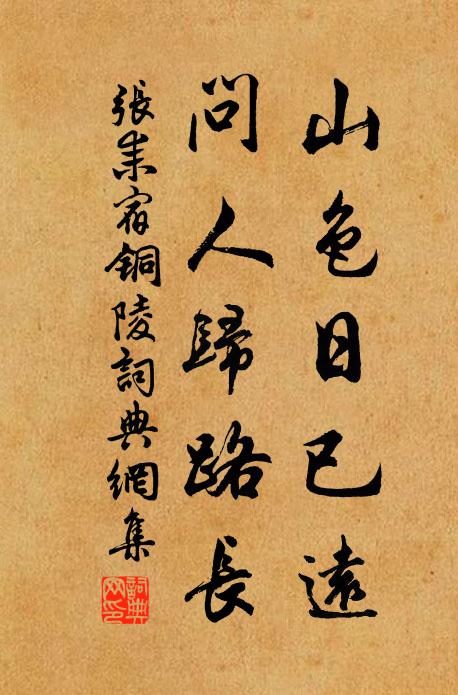 山色日已遠
問人歸路長
張耒宿铜陵詞典網集
詞典
网印